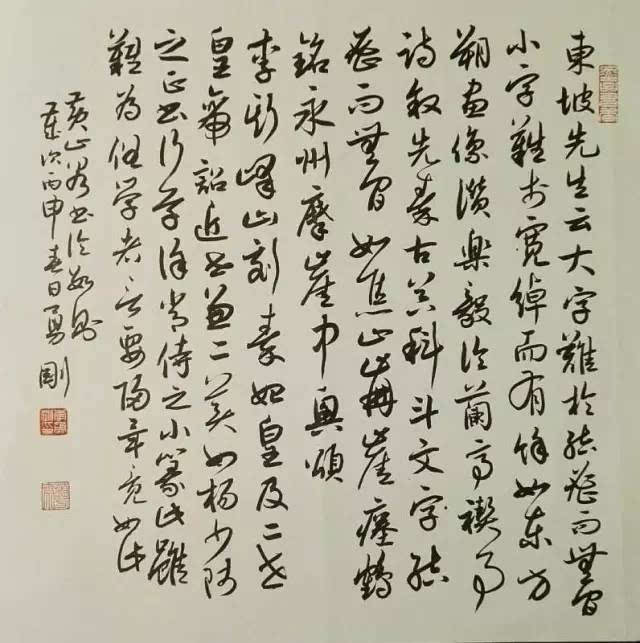 東坡先生云大字難於結密而無間
小字難於寬綽而有餘如東方
朔畫像讚樂毅論蘭亭禊事
詩敘先秦古器科斗文字結
密而無間如焦山崩崖瘞鶴
銘永州摩崖中興頌
李斯嶧山刻秦始皇及二世
皇帝詔近世兼二美如楊少師
之正書行字徐常侍之小篆此雖
難為俗學者言要歸畢竟如此
黃山谷書論數則
歲次丙申春日勇剛